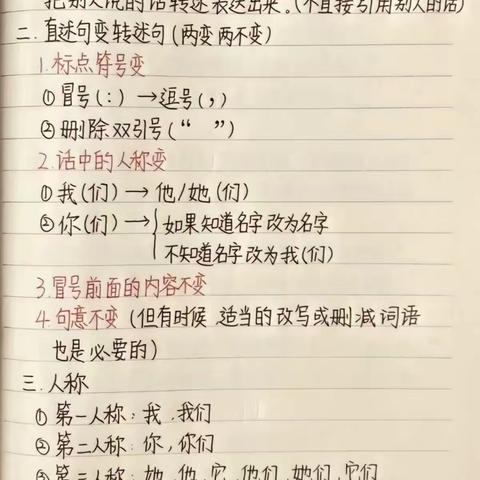 把别人说的话转述表达出来。(不直接引用别人的话)
二.直述句变转述句(两变两不变)
1.标点符号变
①冒号(:)→逗号(,)
②删除双引号(“ ”)
2.话中的人称变
①我(们)→他/她(们)
②你(们)→{如果知道名字改为名字
不知道名字改为我(们)
3.冒号前面的内容不变
4.句意不变(但有时候 适当的改写或删减词语
也是必要的)
三.人称
①第一人称:我、我们
②第二人称:你,你们
③第三人称:她、他、它、他们、她们、它们